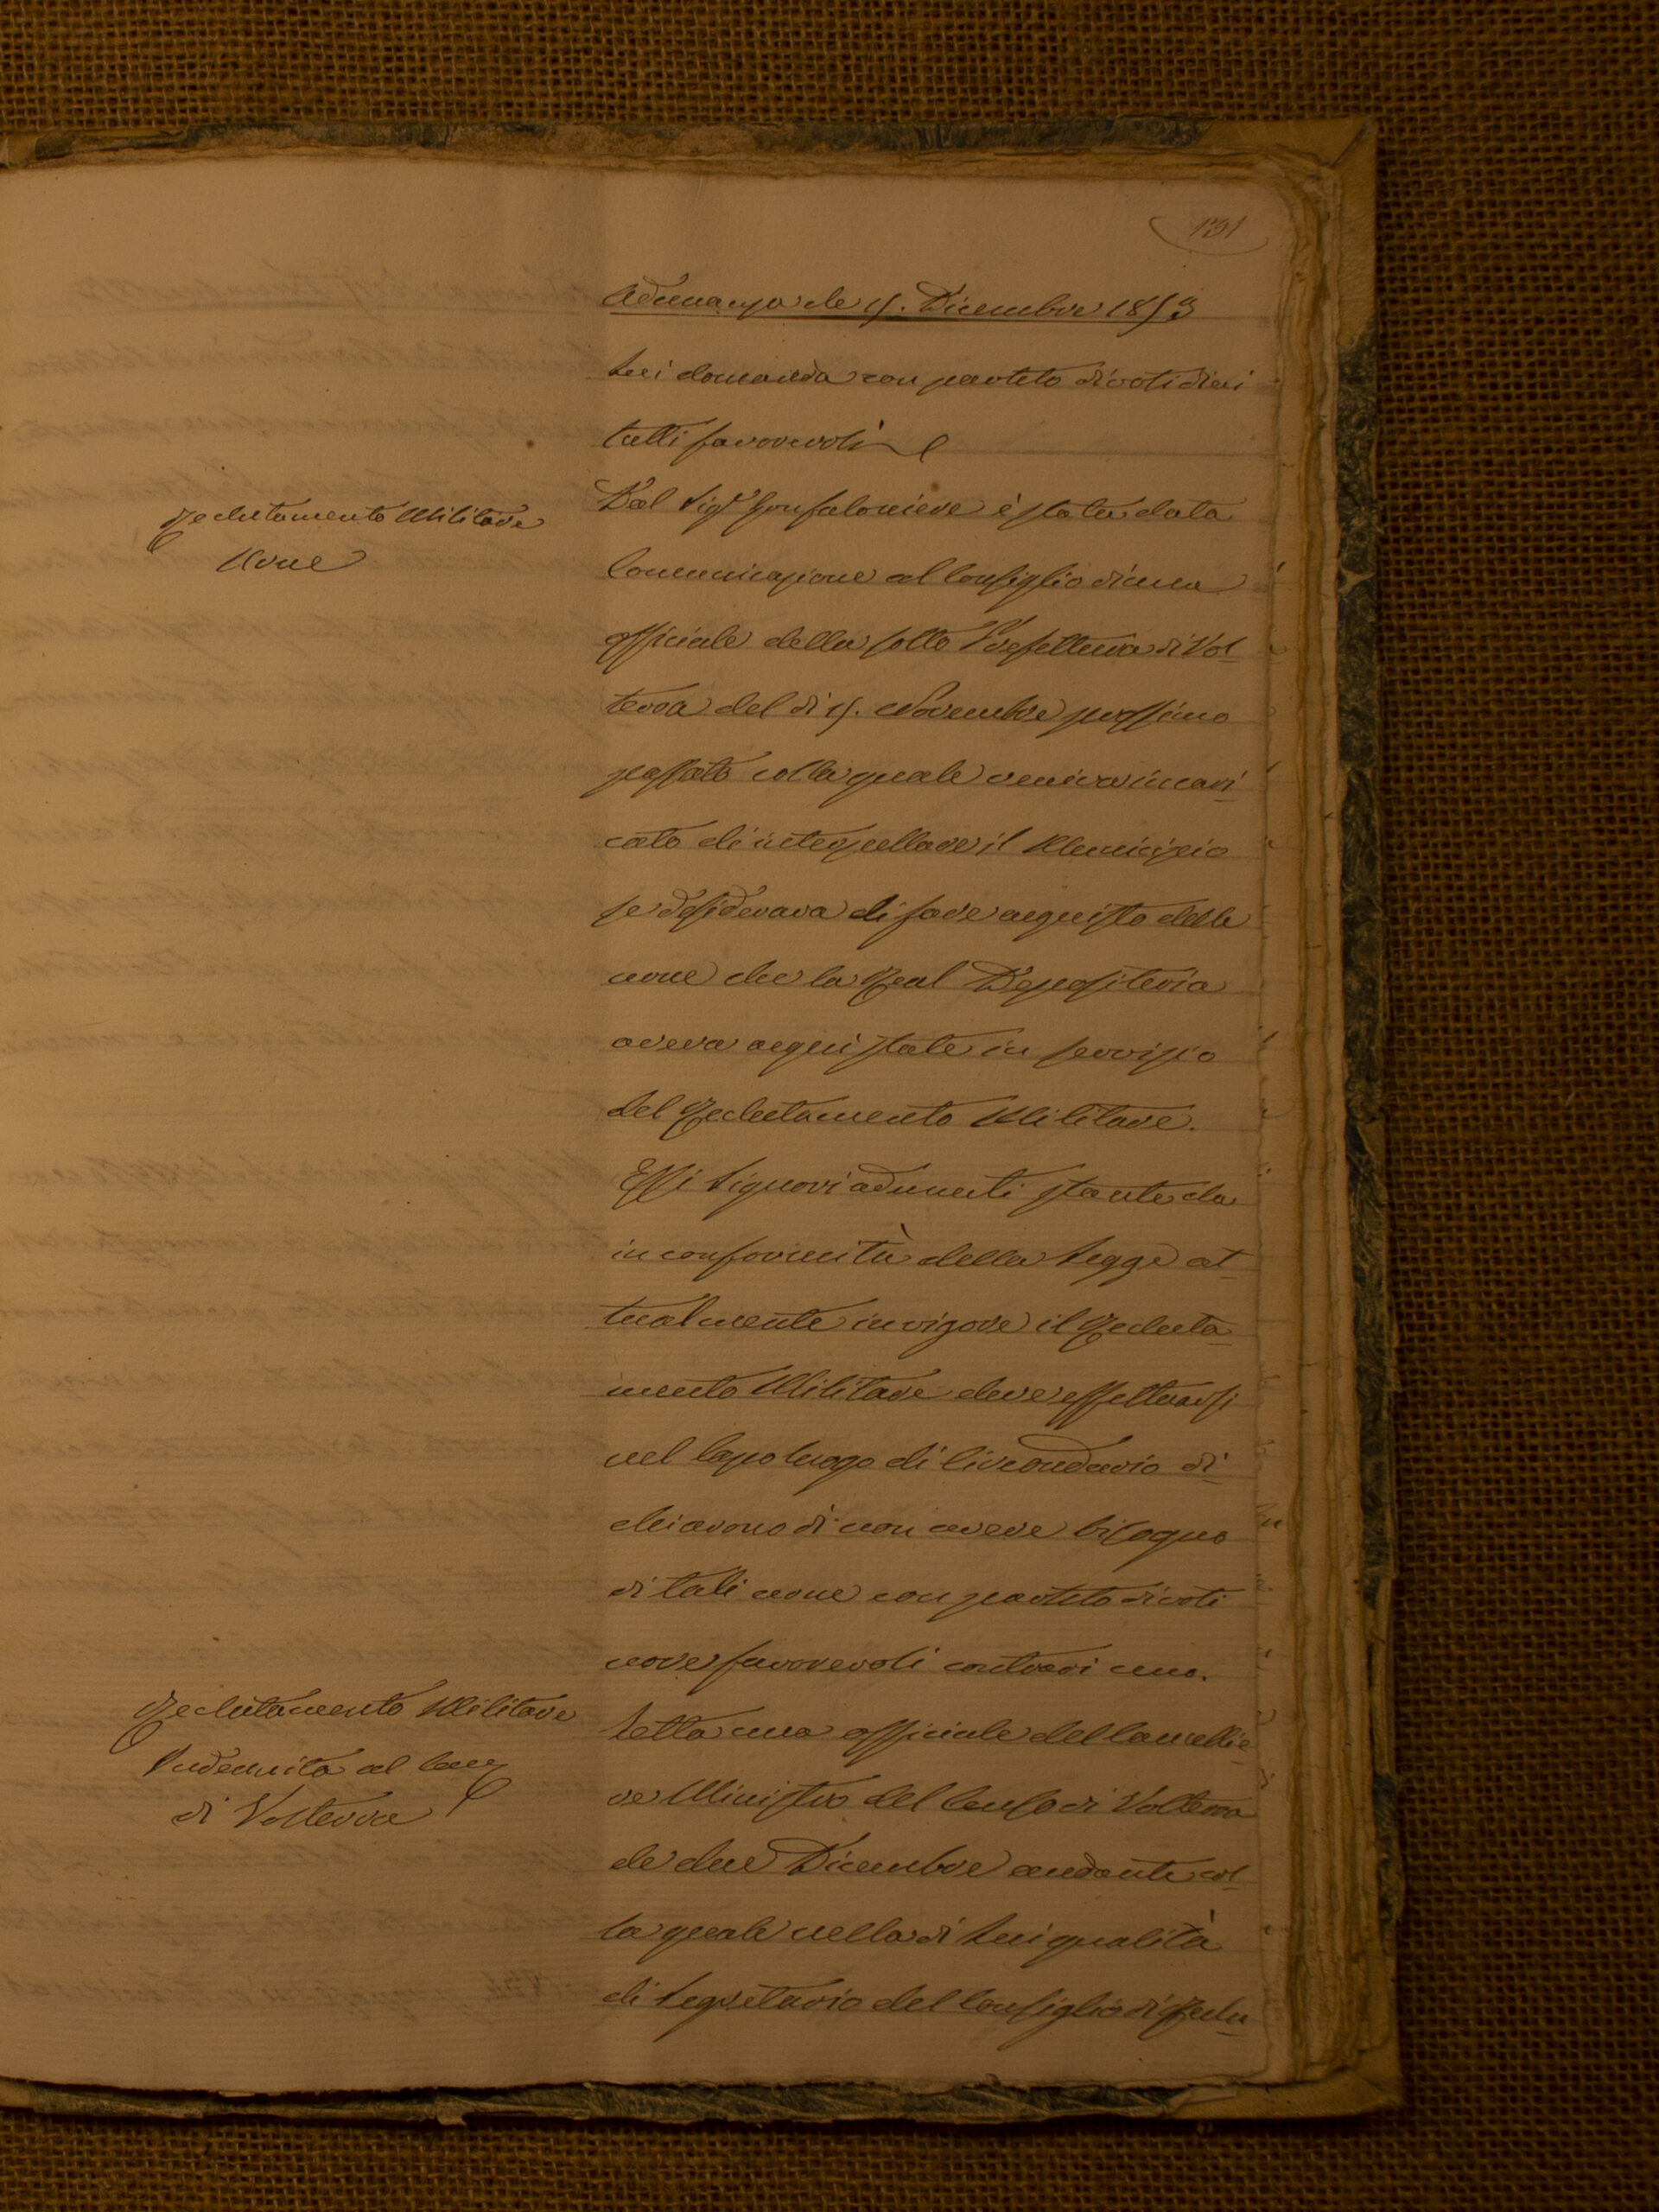 131
Adunanza de 15. Dicembre 1853
lui domanda con partito di voti dieci
tutti favorevoli
Reclutamento Militare
Urne
Dal Sigr Gonfaloniere è stata data
Comunicazione al Consiglio di una
officiale della Sotto Prefettura di Vol
terra del dì 15. Novembre prossimo
passato colla quale veniva incari
cato di interpellare il Municipio
se desiderava di fare acquisto delle
urne che la Real Depositeria
aveva acquistate in servizio
del Reclutamento Militare.
Essi Signori adunati stante che
in conformità della Legge at
tualmente in vigore il Recluta
mento Militare deve effettuarsi
nel Capo luogo di Circondario di
chiarono di non avere bisogno
di tali urne con partito di voti
nove favorevoli contrari uno.
Reclutamento Militare
Indennità al Canc
di Volterra
Letta una officiale del Cancellie
re Ministro del Censo di Volterra
de due Dicembre andante col
la quale nella di lui qualità
di Segretario del Consiglio di Reclu